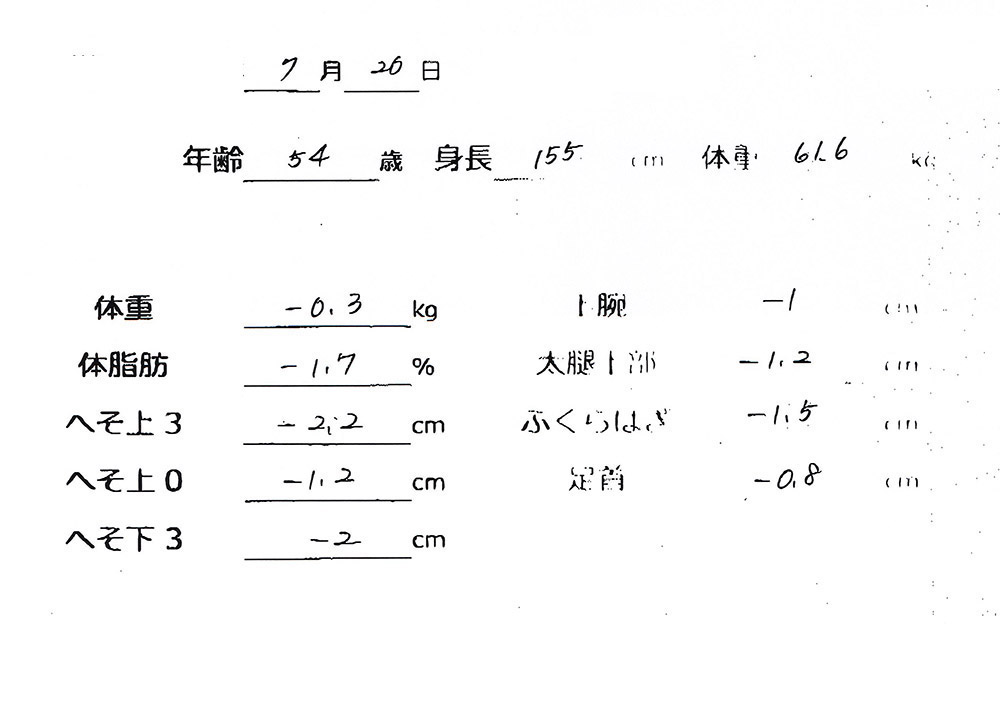 7月26日
年齢 54 歳 身長 155 cm 体重 61.6 kg
体重 -0.3 kg 上腕 -1 cm
体脂肪 -1.7 % 太腿上部 -1.2 cm
へそ上3 -2.2 cm ふくらはぎ -1.5 cm
へそ上0 -1.2 cm 足首 -0.8 cm
へそ下3 -2 cm